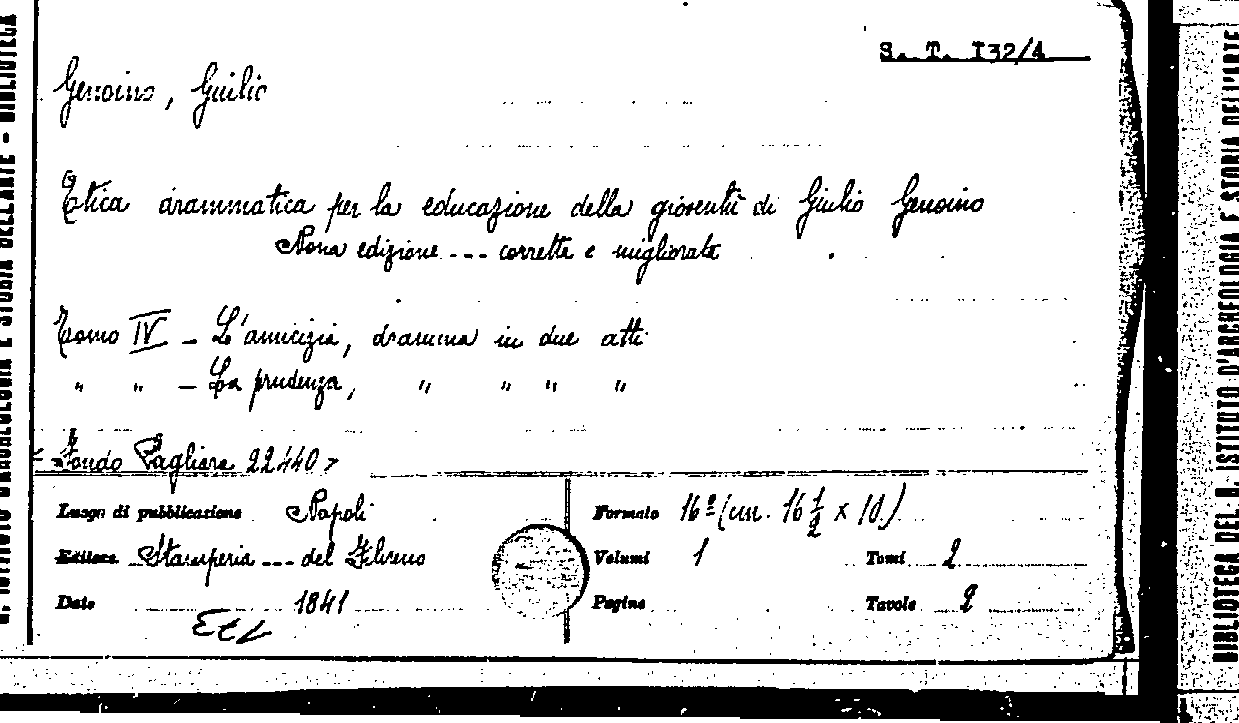 S. T. I32/4
Genoino, Giulio
Etica drammatica per la educazione della gioventù di Giulio Genoino
Nona edizione --- corretta e migliorata
Tomo IV - L'amicizia, dramma in due atti
" " - La prudenza, " " " "
< Fondo Pagliara 22440 >
Luogo di pubblicazione Napoli
Formato 16º (cm. 16 1/2 x 10)
Editore Stamperia --- del Fibreno
Volumi 1 Tomi 2
Data 1841
Pagine Tavole 2
173
BIBLIOTECA DEL R. ISTITUTO D'ARCHEOLOGIA E STORIA DELL'ARTE
R. ISTITUTO D'ARCHEOLOGIA E STORIA DELL'ARTE - BIBLIOTECA